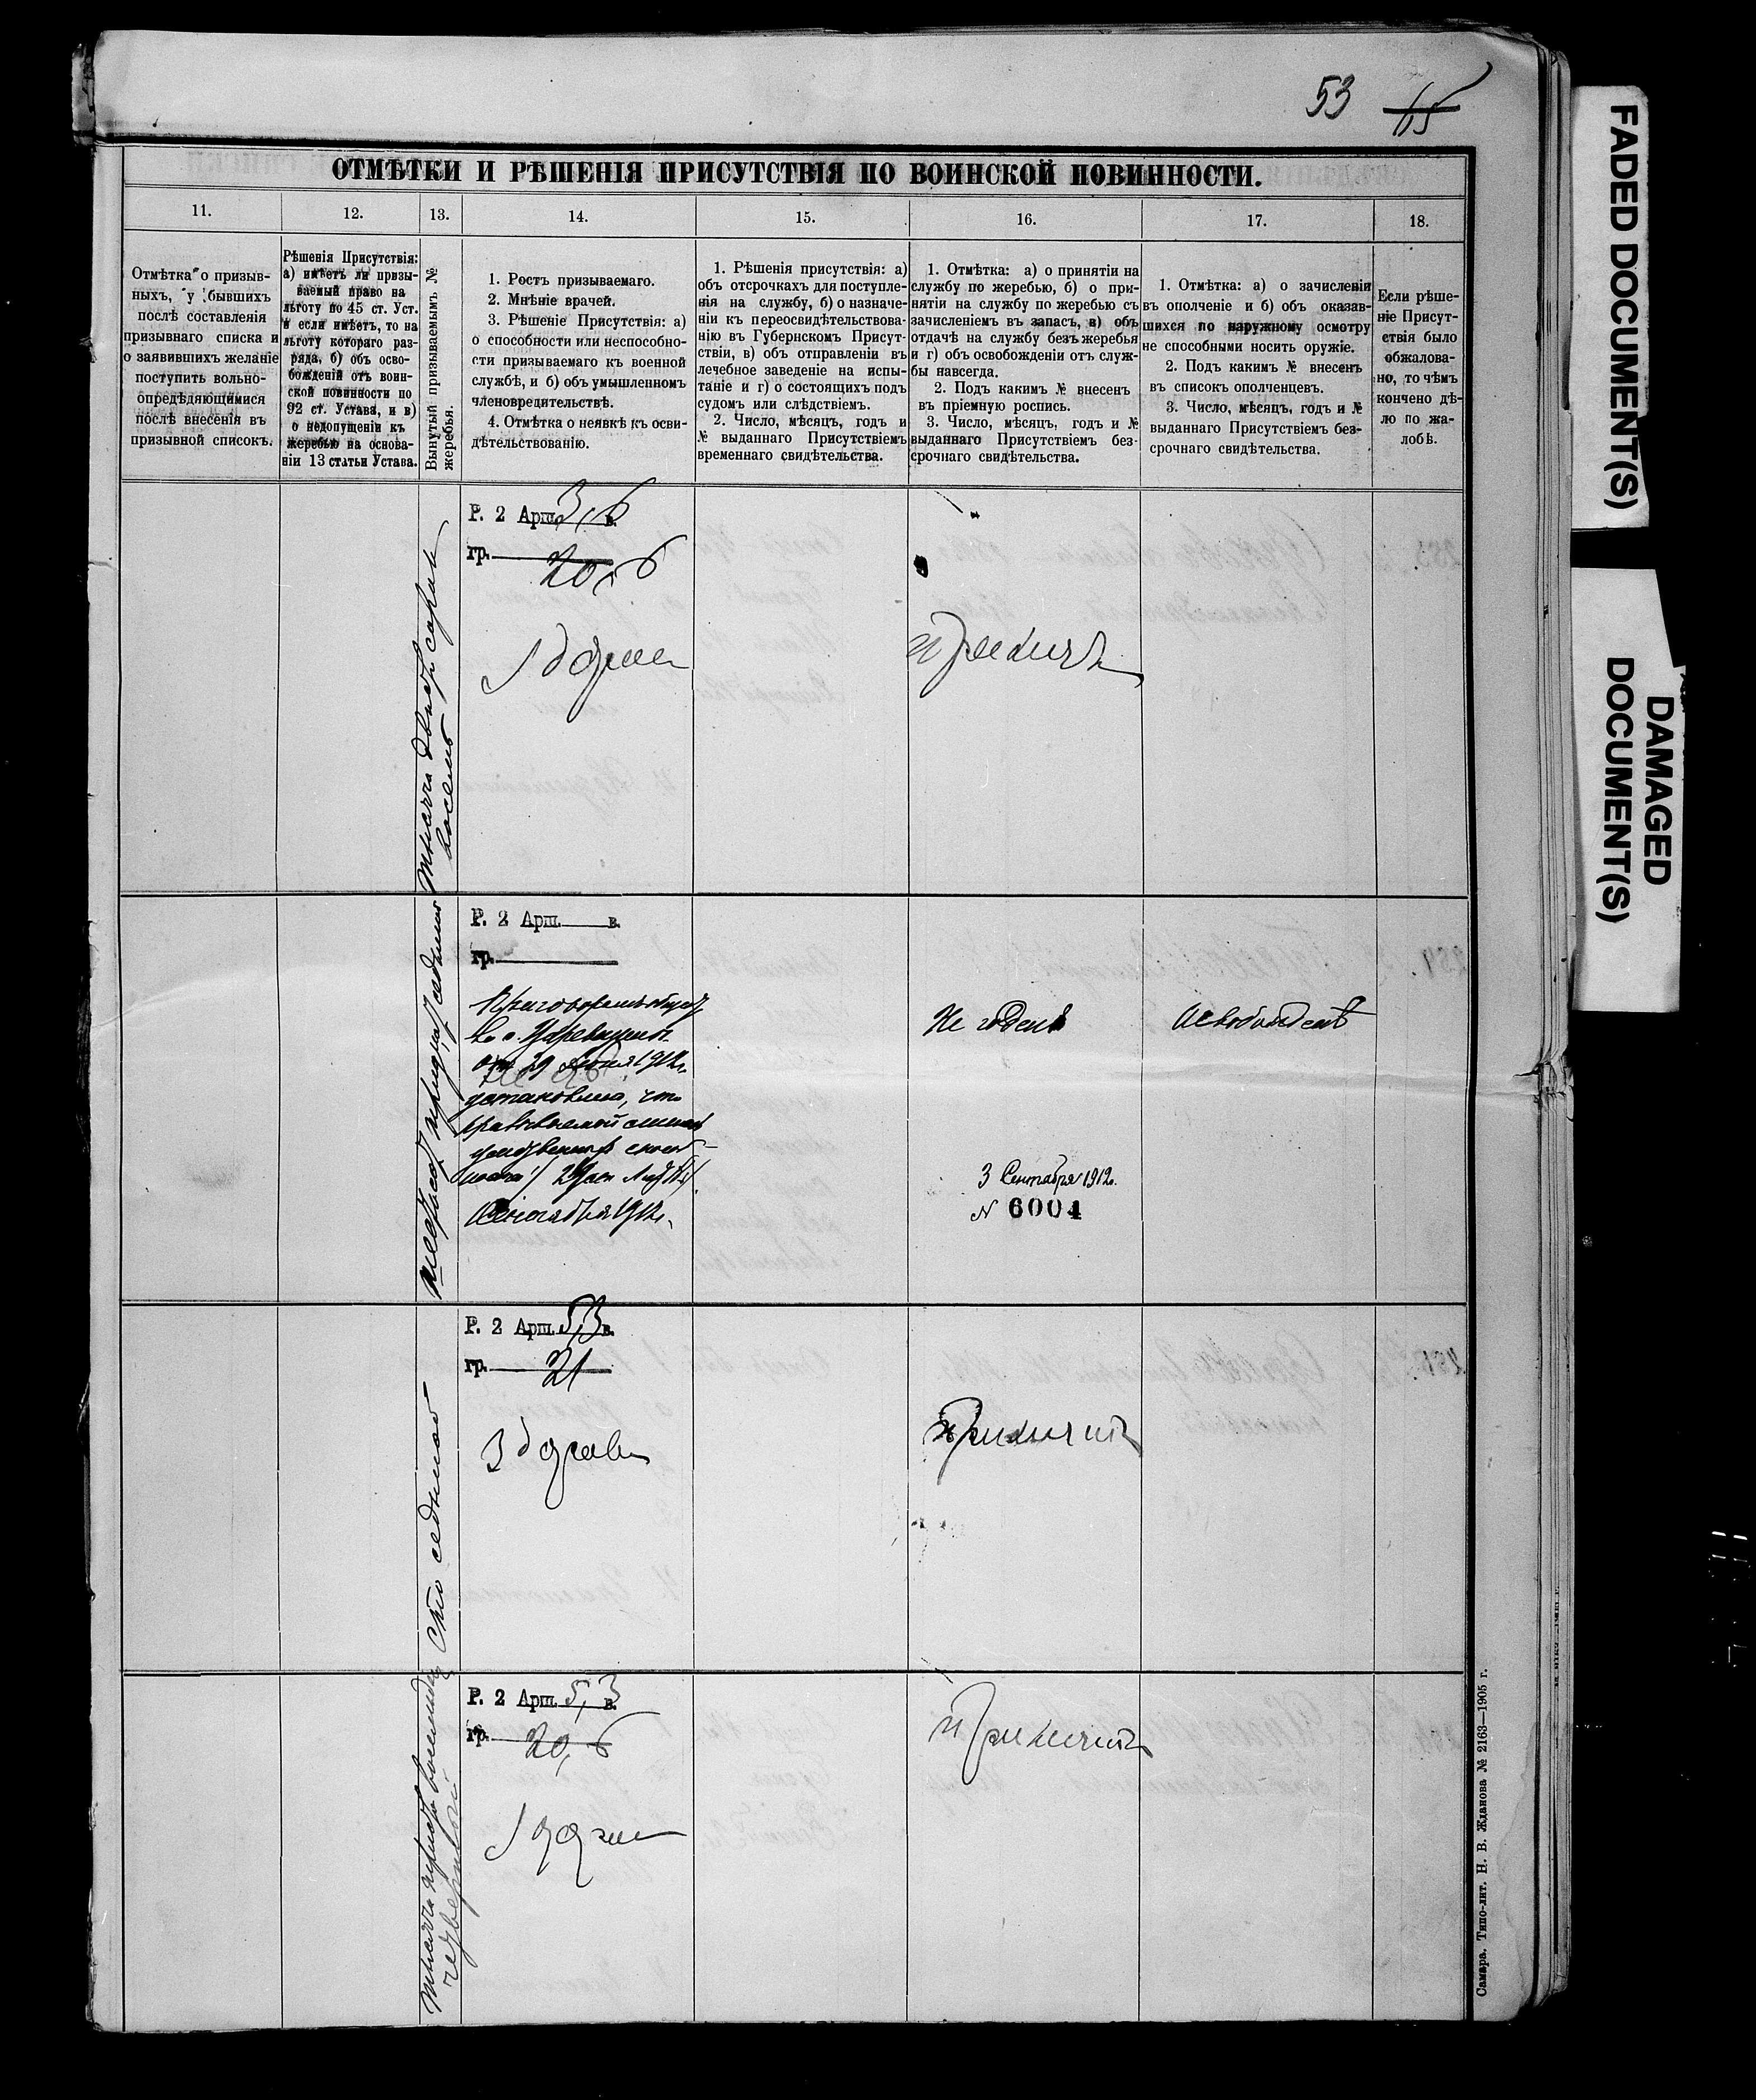 53 65
ОТМѢТКИ И РѢШЕНІЯ ПРИСУТСТВІЯ ПО ВОИНСКОЙ ПОВИННОСТИ.
11.
12.
13.
14.
15.
16.
17.
18.
Отмѣтка о призыв-
ныхъ, у бывшихъ
послѣ составленія
призывнаго списка и
о заявившихъ желаніе
поступить вольно-
опредѣдяющимися
послѣ внесенія въ
призывной списокъ.
Рѣшенія Присутствія:
а) имѣетъ ли призы-
ваемый право на
льготу по 45 ст. Уст.
и если имѣетъ, то на
льготу котораго раз-
ряда, б) объ осво-
божденіи отъ воин-
ской повинности по
92 ст. Устава, и в)
о недопущеніи къ
жеребью на основа-
ніи 13 статьи Устава.
Вынутый призываемымъ №
жеребья.
1. Ростъ призываемаго.
2. Мнѣніе врачей.
3. Рѣшеніе Присутствія: а)
о способности или неспособно-
сти призываемаго къ военной
службѣ, и б) объ умышленномъ
членовредительствѣ.
4. Отмѣтка о неявкѣ къ осви-
дѣтельствованію.
1. Рѣшенія присутствія: а)
объ отсрочкахъ для поступле-
нія на службу, б) о назначе-
ніи къ переосвидѣтельствова-
нію въ Губернскомъ Присут-
ствіи, в) объ отправленіи въ
лечебное заведеніе на испы-
таніе и г) о состоящихъ подъ
судомъ или слѣдствіемъ.
2. Число, мѣсяцъ, годъ и
№ выданнаго Присутствіемъ
временнаго свидѣтельства.
1. Отмѣтка: а) о принятіи на
службу по жеребью, б) о при-
нятіи на службу по жеребью съ
зачисленіемъ въ запасъ, в) объ
отдачѣ на службу безъ жеребья
и г) объ освобожденіи отъ служ-
бы навсегда.
2. Подъ какимъ № внесенъ
въ пріемную роспись.
3. Число, мѣсяцъ, годъ и №
выданнаго Присутствіемъ без-
срочнаго свидѣтельства.
1. Отмѣтка: а) о зачисленіи
въ ополченіе и б) объ оказав-
шихся по наружному осмотру
не способными носить оружіе.
2. Подъ какимъ № внесенъ
въ списокъ ополченцевъ.
3. Число, мѣсяцъ, годъ и №
выданнаго Присутствіемъ без-
срочнаго свидѣтельства.
Если рѣше-
ніе Присут-
ствія было
обжалова-
но, то чѣмъ
кончено дѣ-
ло по жа-
лобѣ.
тысяча двѣсти сорокъ
восемь
Р. 2 Арш. 3,6 в.
гр. 20,6
Здоровъ
Принятъ
шестьсот тридцать седьмой
Р. 2 Арш. в.
гр.
Приговоромъ общест
от 29 Июня 1912 г.
установлено, что
Сентября 1912 г.
Не годенъ
3 Сентября 1912 г.
№ 6004
Освобожденъ
Сто седьмой
Р. 2 Арш. 5,3 в.
гр. 21
Здоровъ
Принятъ
тысяча триста восемьдесят
четвертой
Р. 2 Арш. 5,3 в.
гр. 20,6
Здоровъ
Принятъ
Самара. Типо-лит. Н. В. Жданова № 2163—1905 г.
FADED DOCUMENT(S)
DAMAGED
DOCUMENT(S)